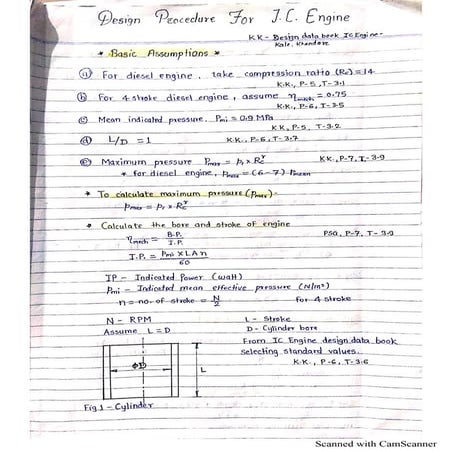 Design Procedure For I.C. Engine
KK - Design data book IC Engine -
Kale, Khandare
* Basic Assumptions *
(a) For diesel engine, take compression ratio (Rc) = 14
K.K., P-5, T-3.1
(b) For 4 stroke diesel engine, assume ηmech = 0.75
K.K., P-6, T-3.5
(c) Mean indicated pressure, Pmi = 0.9 MPa
KK, P-5, T-3.2
(d) L/D = 1 K.K., P-6, T-3.7
(e) Maximum pressure Pmax = P1 × Rc^γ KK, P-7, T-3.9
* for diesel engine, Pmax = (6-7) Pmean
* To calculate maximum pressure (Pmax)-
Pmax = P1 × Rc^γ
* Calculate the bore and stroke of engine
ηmech = B.P. / I.P. PSG, P-7, T-3.9
I.P. = Pmi × LAn / 60
IP - Indicated Power (watt)
Pmi - Indicated mean effective pressure (N/m²)
n = no. of stroke = N/2 for 4 stroke
N - RPM L - Stroke
Assume L = D D - Cylinder bore
From IC Engine design data book
selecting standard values.
K.K., P-6, T-3.6
ΦD
L
Fig 1 - Cylinder
Scanned with CamScanner